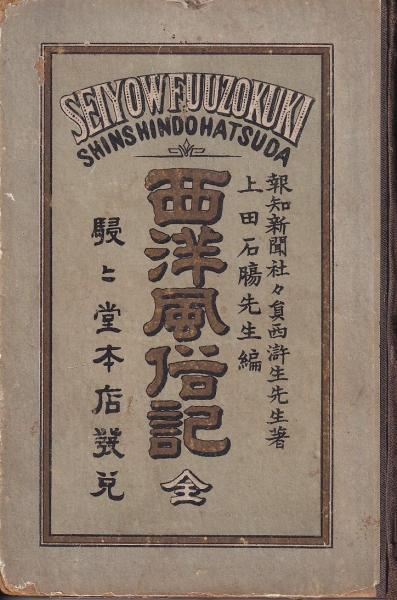 SEIYOW FUUZOKUKI
SHINSHINDO HATSUDA
報知新聞社々員西滸生先生著
上田石腸先生編
西洋風俗記
全
駸〻堂本店發兌